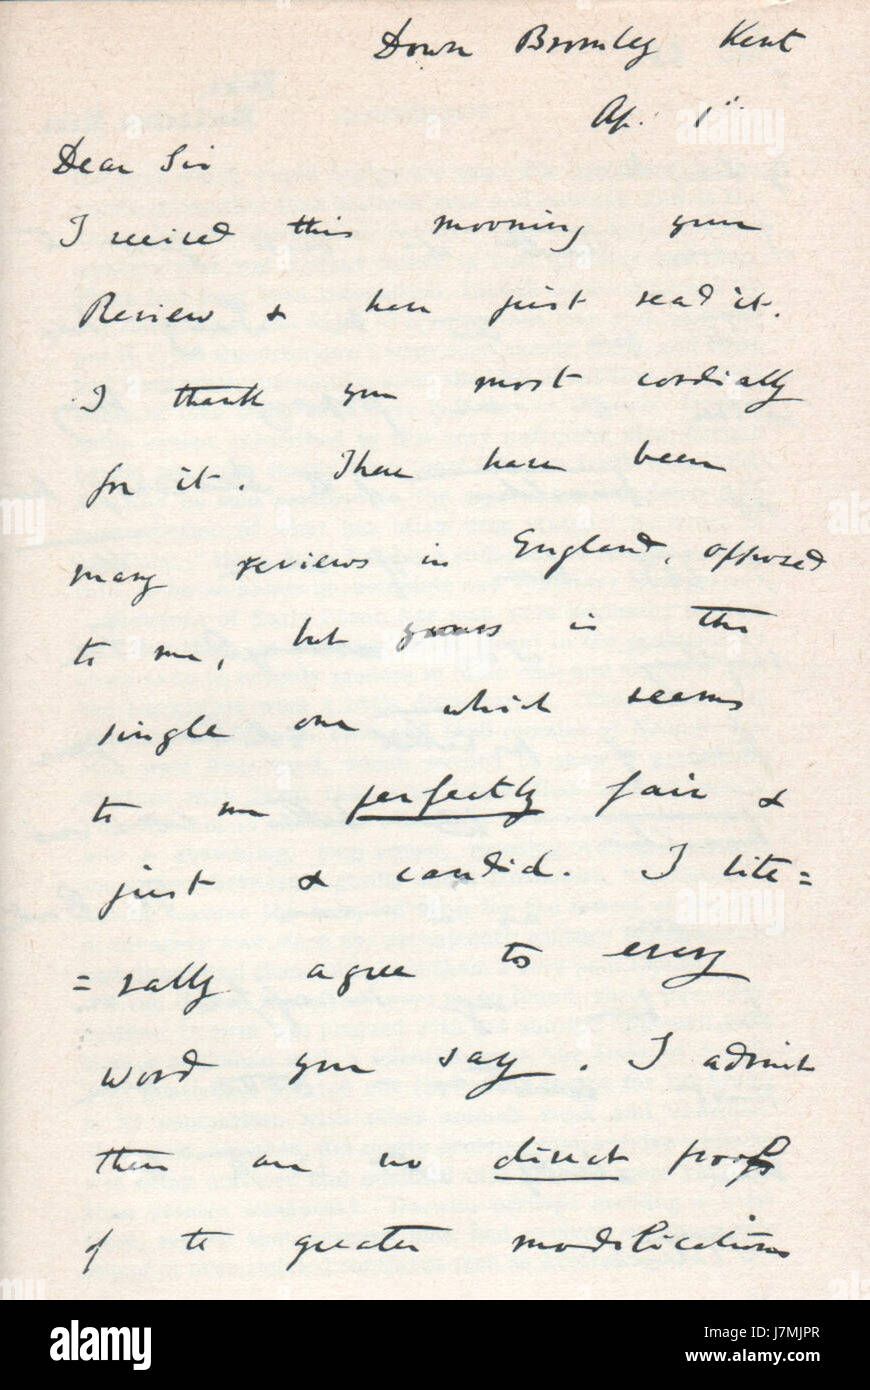 Down Bromley Kent
Ap. 1st
Dear Sir
I received this morning your
Review & have just read it.
I thank you most cordially
for it. There have been
many reviews in England, opposed
to me, but yours is the
single one which seems
to me perfectly fair &
just & candid. I lite=
=rally agree to every
word you say. I admit
there are no direct proofs
of the greater modifications
alamy
Image ID: J7MJPR
www.alamy.com